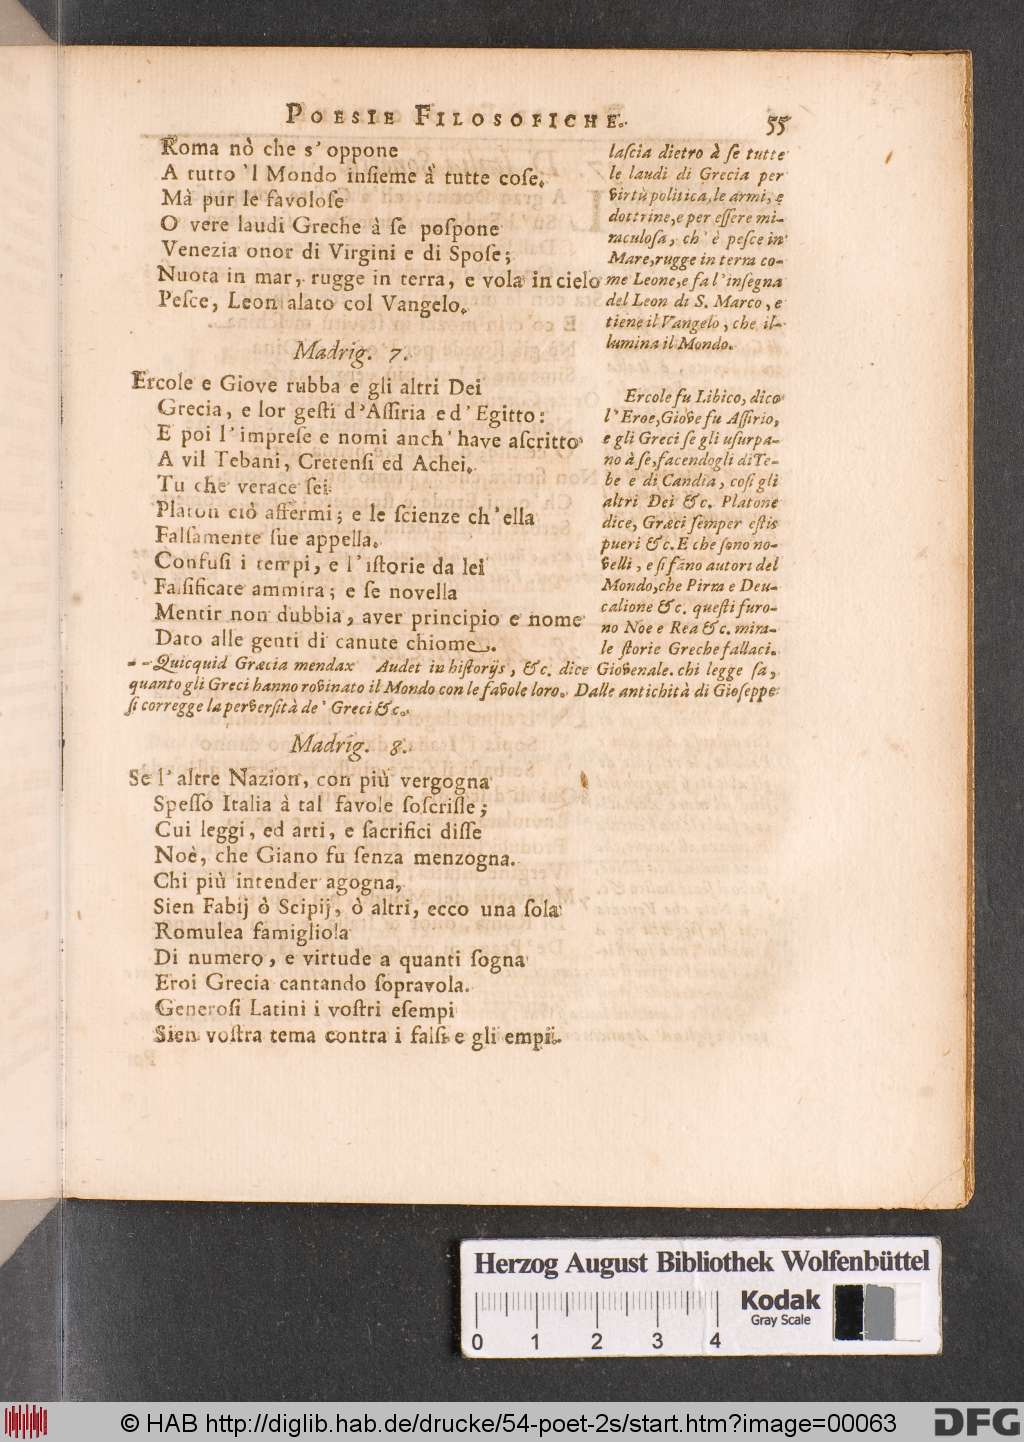 POESIE FILOSOFICHE. 55
Roma nò che s'oppone
A tutto 'l Mondo inſieme à tutte coſe.
Mà pur le favoloſe
O vere laudi Greche à ſe poſpone
Venezia onor di Virgini e di Spoſe;
Nuota in mar, rugge in terra, e vola in cielo
Peſce, Leon alato col Vangelo.
laſcia dietro à ſe tutte
le laudi di Grecia per
virtù politica, le armi, e
dottrine, e per eſſere mi-
raculoſa, ch' è peſce in
Mare, rugge in terra co-
me Leone, e fa l'inſegna
del Leon di S. Marco, e
tiene il Vangelo, che il-
lumina il Mondo.
Madrig. 7.
Ercole e Giove rubba e gli altri Dei
Grecia, e lor geſti d'Aſſiria ed' Egitto:
E poi l'impreſe e nomi anch' have aſcritto
A vil Tebani, Cretenſi ed Achei.
Tu che verace ſei
Platon ciò affermi; e le ſcienze ch'ella
Falſamente ſue appella.
Confuſi i tempi, e l'iſtorie da lei
Falſificate ammira; e ſe novella
Mentir non dubbia, aver principio e nome
Dato alle genti di canute chiome.
Ercole fu Libico, dico
l'Eroe, Giove fu Aſſirio,
e gli Greci ſe gli uſurpa-
no à ſe, facendogli di Te-
be e di Candia, coſi gli
altri Dei &c. Platone
dice, Græci ſemper eſtis
pueri &c. E che ſono no-
velli, e ſi fàno autori del
Mondo, che Pirra e Deu-
calione &c. queſti furo-
no Noe e Rea &c. mira-
le ſtorie Greche fallaci.
- - Quicquid Græcia mendax Audet in hiſtorijs, &c. dice Giovenale. chi legge ſa,
quanto gli Greci hanno rovinato il Mondo con le favole loro. Dalle antichità di Gioſeppe
ſi corregge la perverſità de' Greci &c.
Madrig. 8.
Se l'altre Nazion, con più vergogna
Speſſo Italia à tal favole ſoſcriſſe;
Cui leggi, ed arti, e ſacrifici diſſe
Noè, che Giano fu ſenza menzogna.
Chi più intender agogna,
Sien Fabij ò Scipij, ò altri, ecco una ſola
Romulea famigliola
Di numero, e virtude a quanti ſogna
Eroi Grecia cantando ſopravola.
Generoſi Latini i voſtri eſempi
Sien voſtra tema contra i falſi e gli empii.
Herzog August Bibliothek Wolfenbüttel
0 1 2 3 4
Kodak
Gray Scale
© HAB http://diglib.hab.de/drucke/54-poet-2s/start.htm?image=00063
DFG